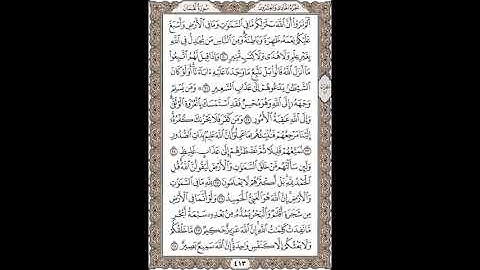 سُورَةُ لُقْمَان
الجُزْءُ الحَادِي وَالعِشْرُونَ
أَلَمْ تَرَوْا۟ أَنَّ ٱللَّهَ سَخَّرَ لَكُم مَّا فِى ٱلسَّمَٰوَٰتِ وَمَا فِى ٱلْأَرْضِ وَأَسْبَغَ
عَلَيْكُمْ نِعَمَهُۥ ظَٰهِرَةً وَبَاطِنَةً وَمِنَ ٱلنَّاسِ مَن يُجَٰدِلُ فِى ٱللَّهِ
بِغَيْرِ عِلْمٍ وَلَا هُدًى وَلَا كِتَٰبٍ مُّنِيرٍ ٢٠ وَإِذَا قِيلَ لَهُمُ ٱتَّبِعُوا۟
مَآ أَنزَلَ ٱللَّهُ قَالُوا۟ بَلْ نَتَّبِعُ مَا وَجَدْنَا عَلَيْهِ ءَابَآءَنَآ أَوَلَوْ كَانَ
ٱلشَّيْطَٰنُ يَدْعُوهُمْ إِلَىٰ عَذَابِ ٱلسَّعِيرِ ٢١ وَمَن يُسْلِمْ
وَجْهَهُۥٓ إِلَى ٱللَّهِ وَهُوَ مُحْسِنٌ فَقَدِ ٱسْتَمْسَكَ بِٱلْعُرْوَةِ ٱلْوُثْقَىٰ
وَإِلَى ٱللَّهِ عَٰقِبَةُ ٱلْأُمُورِ ٢٢ وَمَن كَفَرَ فَلَا يَحْزُنكَ كُفْرُهُۥٓ
إِلَيْنَا مَرْجِعُهُمْ فَنُنَبِّئُهُم بِمَا عَمِلُوٓا۟ إِنَّ ٱللَّهَ عَلِيمٌۢ بِذَاتِ ٱلصُّدُورِ
٢٣ نُمَتِّعُهُمْ قَلِيلًا ثُمَّ نَضْطَرُّهُمْ إِلَىٰ عَذَابٍ غَلِيظٍ ٢٤
وَلَئِن سَأَلْتَهُم مَّنْ خَلَقَ ٱلسَّمَٰوَٰتِ وَٱلْأَرْضَ لَيَقُولُنَّ ٱللَّهُ قُلِ
ٱلْحَمْدُ لِلَّهِ بَلْ أَكْثَرُهُمْ لَا يَعْلَمُونَ ٢٥ لِلَّهِ مَا فِى ٱلسَّمَٰوَٰتِ
وَٱلْأَرْضِ إِنَّ ٱللَّهَ هُوَ ٱلْغَنِىُّ ٱلْحَمِيدُ ٢٦ وَلَوْ أَنَّمَا فِى ٱلْأَرْضِ
مِن شَجَرَةٍ أَقْلَٰمٌ وَٱلْبَحْرُ يَمُدُّهُۥ مِنۢ بَعْدِهِۦ سَبْعَةُ أَبْحُرٍ
مَّا نَفِدَتْ كَلِمَٰتُ ٱللَّهِ إِنَّ ٱللَّهَ عَزِيزٌ حَكِيمٌ ٢٧ مَّا خَلْقُكُمْ
وَلَا بَعْثُكُمْ إِلَّا كَنَفْسٍ وَٰحِدَةٍ إِنَّ ٱللَّهَ سَمِيعٌۢ بَصِيرٌ ٢٨
٤١٣